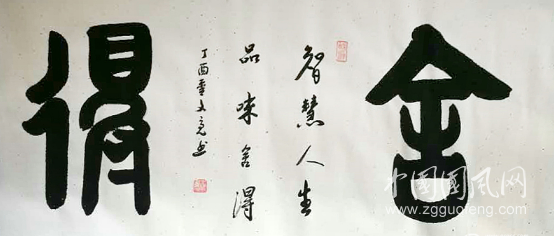 舍
智慧人生
品味舍得
丁酉文亮书
得
中国国风网
www.zgguofeng.com